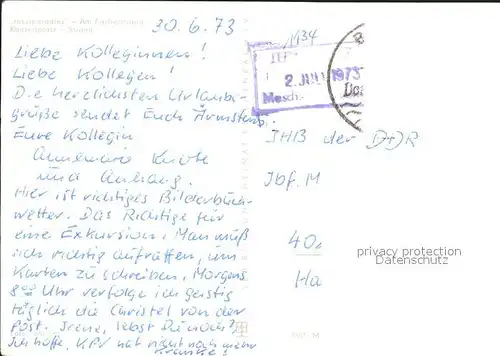 30.6.73
Liebe Kolleginnen!
Liebe Kollegen!
Die herzlichsten Urlaubs-
grüße sendet Euch Ärmsten
Eure Kollegin
Annemarie
und Anhang.
Hier ist richtiges Bilderbuch-
wetter. Das Richtige für
eine Exkursion. Man muß
sich richtig aufraffen, um
Karten zu schreiben. Morgens
8⁰⁰ Uhr verfolge ich geistig
täglich die Christel von der
Post. Irene, lebst Du noch?
Ich hoffe, KPV hat nicht noch mehr
Kranke!
1934
2. JULI 1973
Masch
IHB der DDR
Ibf. M
40
Ha
privacy protection
Datenschutz